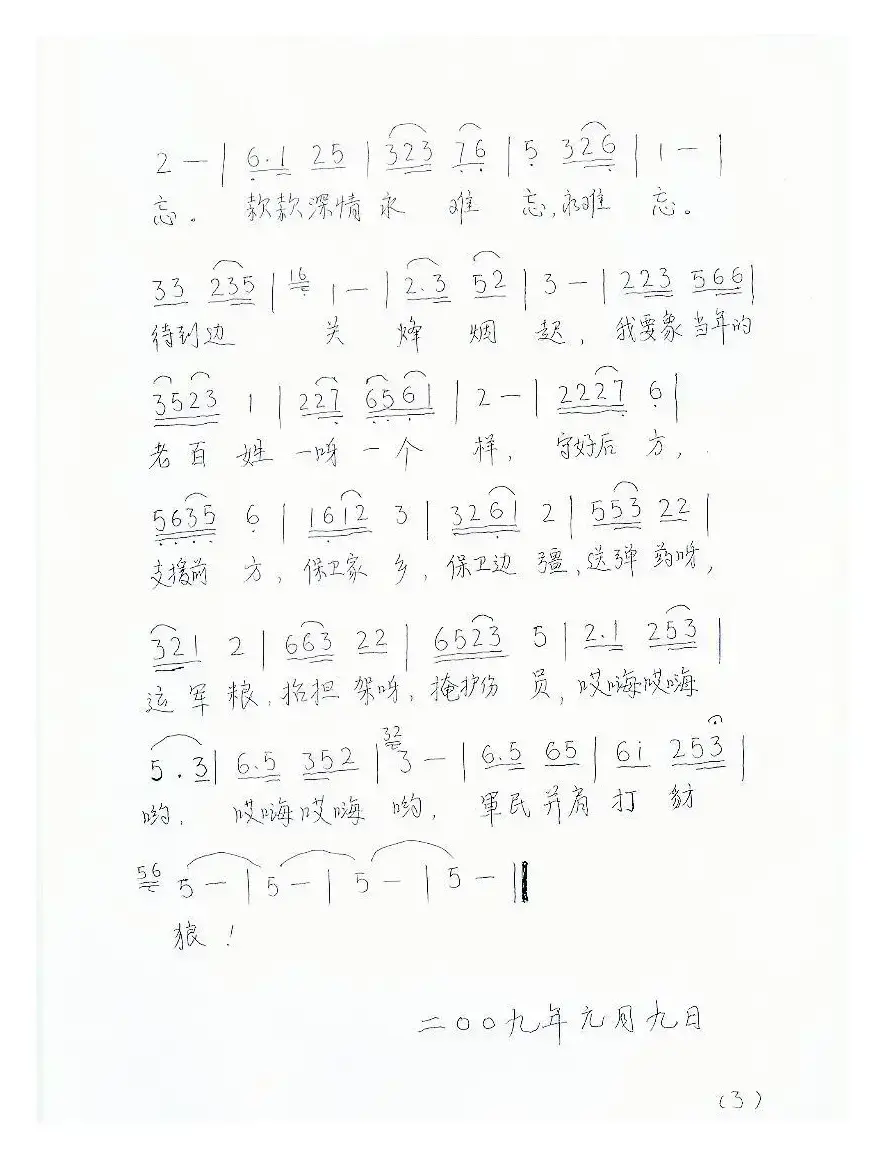 2 — | 6.1 25 | 323 76 | 5 326 | 1 — |
忘。 款款深情永 难 忘,永难 忘。
33 235 | 16 1 — | 2.3 52 | 3 — | 223 566 |
待到边 关 烽 烟 起, 我要象当年的
3523 1 | 227 6561 | 2 — | 2227 6 |
老百姓 一呀一个 样, 守好后 方,
5635 6 | 1612 3 | 3261 2 | 553 22 |
支援前 方, 保卫家 乡, 保卫边 疆,送弹药呀,
321 2 | 663 22 | 6523 5 | 2.1 253 |
运军粮,抬担架呀,掩护伤 员,哎嗨哎嗨
5.3 | 6.5 352 | 32 3 — | 6.5 65 | 6i 253 |
哟, 哎嗨哎嗨 哟, 軍民并肩打 豺
56 5 — | 5 — | 5 — | 5 — ‖
狼!
二〇〇九年元月九日
(3)